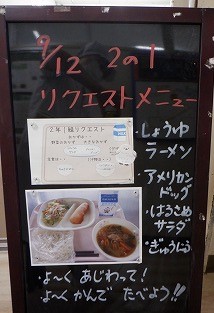 9/12 2の1
リクエストメニュー
2年1組リクエスト
・しょうゆ
ラーメン
・アメリカン
ドッグ
・はるさめ
サラダ
・ぎゅうにゅう
・よ〜く あじわって!
・よ〜く かんで たべよう!!